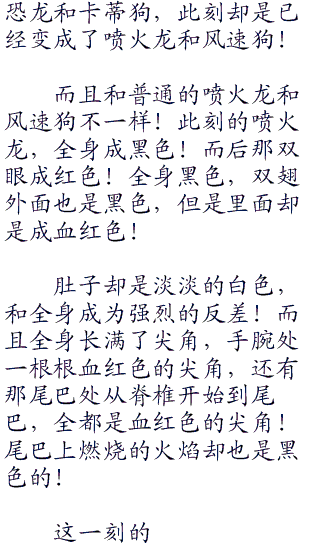 恐龙和卡蒂狗，此刻却是已
经变成了喷火龙和风速狗！
而且和普通的喷火龙和
风速狗不一样！此刻的喷火
龙，全身成黑色！而后那双
眼成红色！全身黑色，双翅
外面也是黑色，但是里面却
是成血红色！
肚子却是淡淡的白色，
和全身成为强烈的反差！而
且全身长满了尖角，手腕处
一根根血红色的尖角，还有
那尾巴处从脊椎开始到尾
巴，全都是血红色的尖角！
尾巴上燃烧的火焰却也是黑
色的！
这一刻的